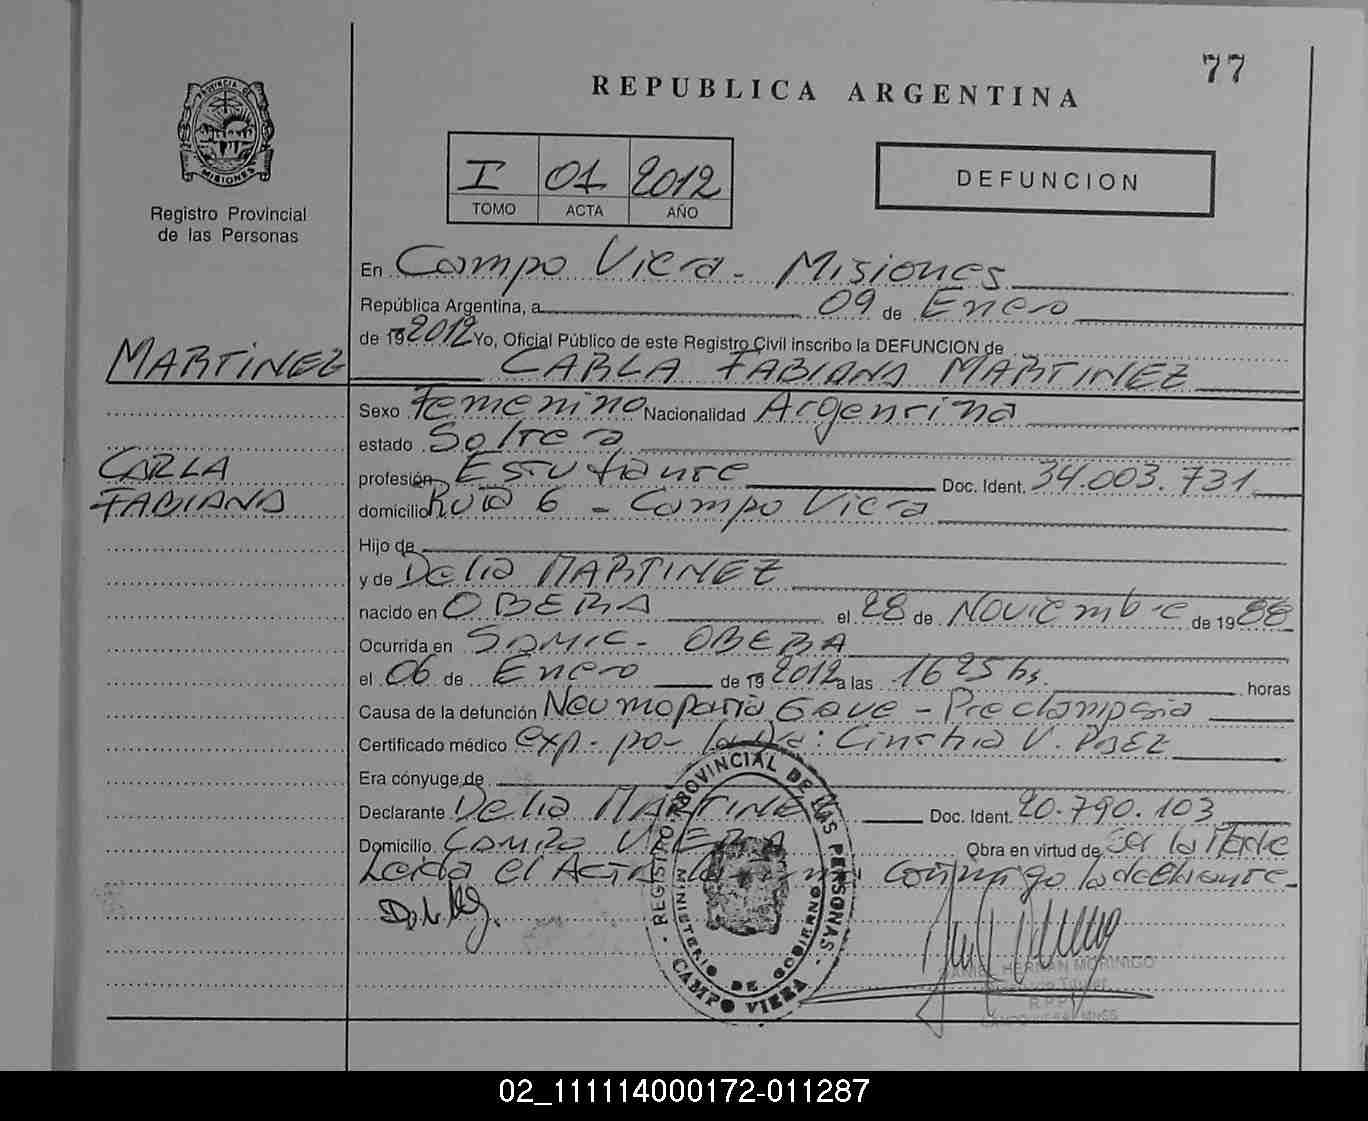 77
REPUBLICA ARGENTINA
PROVINCIA DE MISIONES
Registro Provincial
de las Personas
I 01 2012
TOMO ACTA AÑO
DEFUNCION
En Campo Viera - Misiones
República Argentina, a 09 de Enero
de 19 2012 Yo, Oficial Público de este Registro Civil inscribo la DEFUNCION de
MARTINEZ
CARLA FABIANA MARTINEZ
Sexo Femenino Nacionalidad Argentina
estado Soltera
CARLA
FABIANA
profesión Estudiante Doc. Ident. 34.003.731
domicilio Ruta 6 - Campo Viera
Hijo de
y de Delia MARTINEZ
nacido en OBERA el 28 de Noviembre de 1988
Ocurrida en SAMIC - OBERA
el 06 de Enero de 19 2012 a las 16 25 hs. horas
Causa de la defunción Neumopatia Grave - Preclampsia
Certificado médico exp. por la Dra: Cinthia V. PAEZ
Era cónyuge de
Declarante Delia MARTINEZ Doc. Ident. 20.790.103
Domicilio CAMPO VIERA Obra en virtud de Ser la Madre
Leida el Acta la conmigo la declarante -
REGISTRO PROVINCIAL DE LAS PERSONAS
MINISTERIO DE GOBIERNO
CAMPO VIERA
HERNAN MORINIGO
R.P.P.
02_111114000172-011287